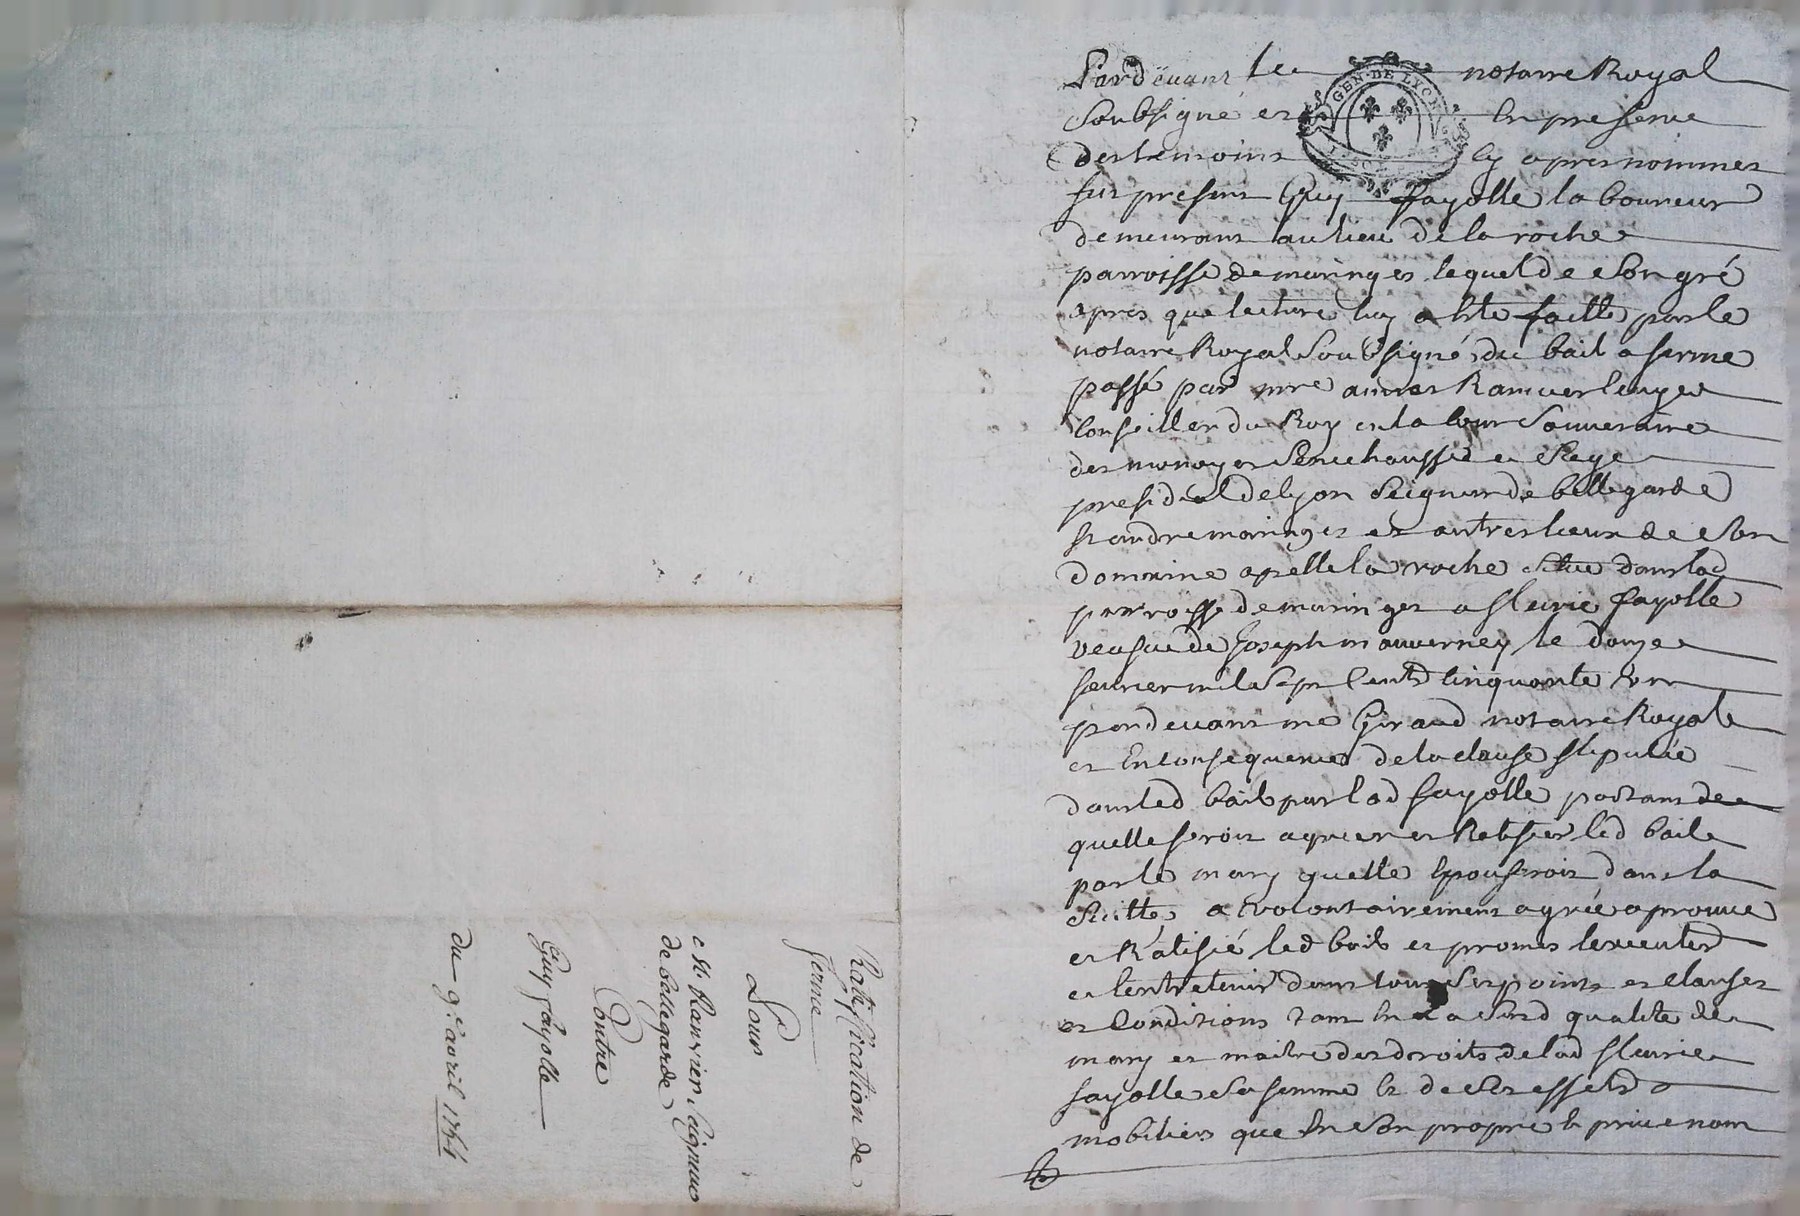 Pardevant le notaire Royal
Soubsigné et En presence
des temoins Cy apres nommes
fut present Guy fayolle laboureur
demeurant au lieu de la roche
parroisse de maringes lequel de son gré
apres que lecture luy a este faitte par le
notaire Royal Soubsigné du bail a ferme
passé par mre Ranvier
Conseiller du Roy en la Cour Souveraine
des monoyes Senechaussée et Siege
presidial de lyon Seigneur de bellegarde
St andre maringes et autres lieux de son
domaine apellé la roche situé dans lad
parroisse de maringes a fleurie fayolle
veufve de Joseph mauverney le douze
fevrier mil Sept Cents Cinquante
pardevant me Giraud notaire Royal
et En Consequence de la clause stipulée
dans led bail par lad fayolle portant
quelle feroit agreer et Ratifier led bail
par le mary quelle Epouseroit dans la
Suitte, a volontairement agréé aprouvé
et Ratifié led bail et promis lexecuter
et lentretenir dans tous Ses points et clauses
et Conditions tant En Sa Susd qualité de
mary et maitre des droits de lad fleurie
fayolle Sa femme et de Ses effets
mobiliers que En Son propre et privé nom
Ratiffication de
ferme
Pour
Mr Ranvier Seigneur
de bellegarde
Contre
Guy fayolle
du 9e avril
GEN. DE LYON